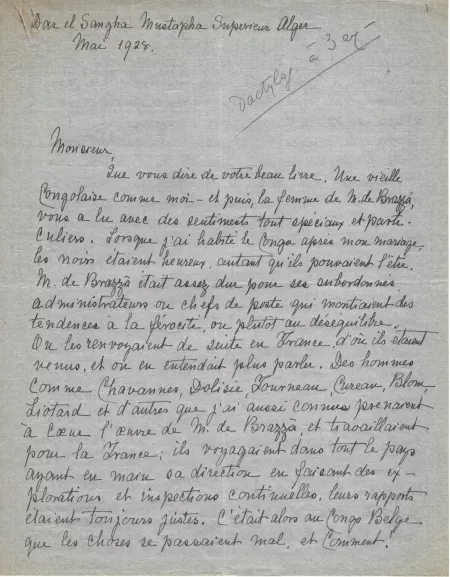 Dar el Sangha Mustapha Superieur Alger
Mai 1928.
Dactylog à 3 ex
Monsieur,
Que vous dire de votre beau livre. Une vieille
Congolaise comme moi - et puis, la femme de M. de Brazzà,
vous a lu avec des sentiments tout spéciaux et parti-
culiers. Lorsque j'ai habité le Congo après mon mariage,
les noirs étaient heureux, autant qu'ils pouvaient l'être.
M. de Brazzà était assez dur pour ses subordonnés,
administrateurs ou chefs de poste qui montraient des
tendences à la férocité, ou plutôt au déséquilibre.
On les renvoyaient de suite en France, d'où ils étaient
venus, et on en entendait plus parler. Des hommes
comme Chavannes, Dolisie, Fourneau, Cureau, Blom,
Liotard et d'autres que j'ai aussi connus prenaient
à cœur l'œuvre de M. de Brazzà et travaillaient
pour la France; ils voyagaient dans tout le pays
ayant en main sa direction en faisant des ex-
plorations et inspections continuelles, leurs rapports
étaient toujours justes. C'était alors au Congo Belge
que les choses se passaient mal, et Comment!